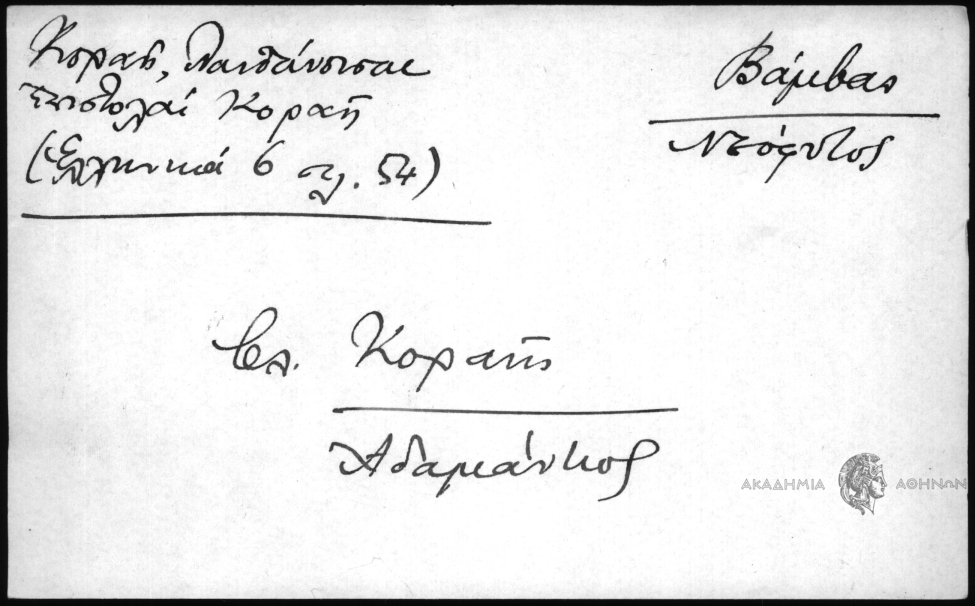 Κοραῆ, Λανθάνουσαι
Ἐπιστολαί Κοραῆ
(Ἑλληνικά 6 σελ. 54)
Βάμβας
Νεόφυτος
βλ. Κοραῆς
Ἀδαμάντιος
ΑΚΑΔΗΜΙΑ ΑΘΗΝΩΝ